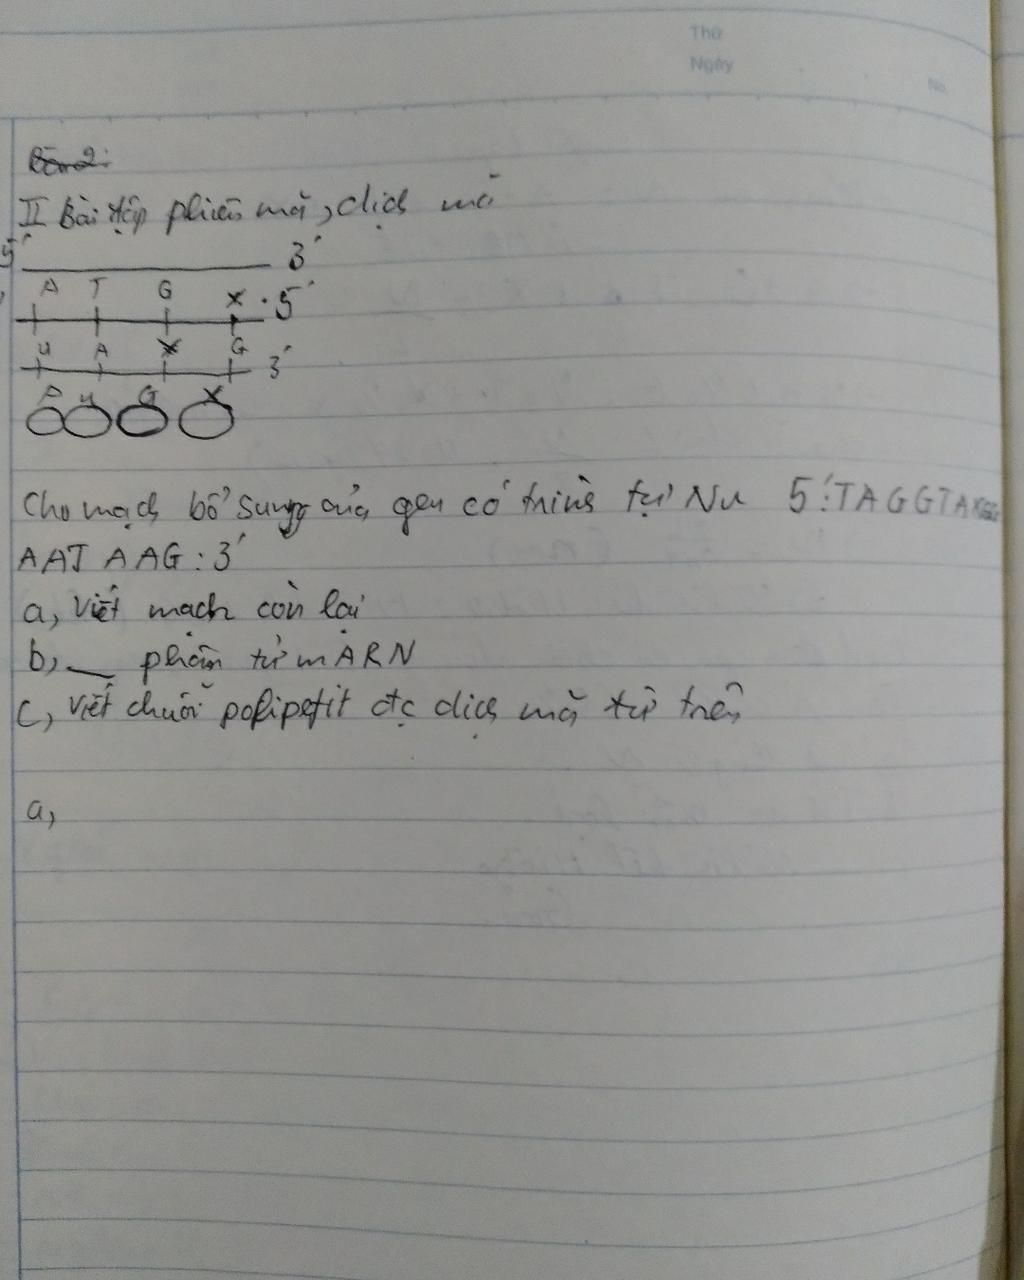 Thứ
Ngày
No.
Bài 2:
II Bài tập phiên mã, dịch mã
5' 3'
A T G X . 5'
U A X G 3'
A U G X
Cho mạch bổ sung của gen có trình tự Nu 5': TAGGTAX
AAT AAG : 3'
a, Viết mạch còn lại
b, __ phân tử mARN
c, viết chuỗi polipeptit đc dịch mã từ trên
a,